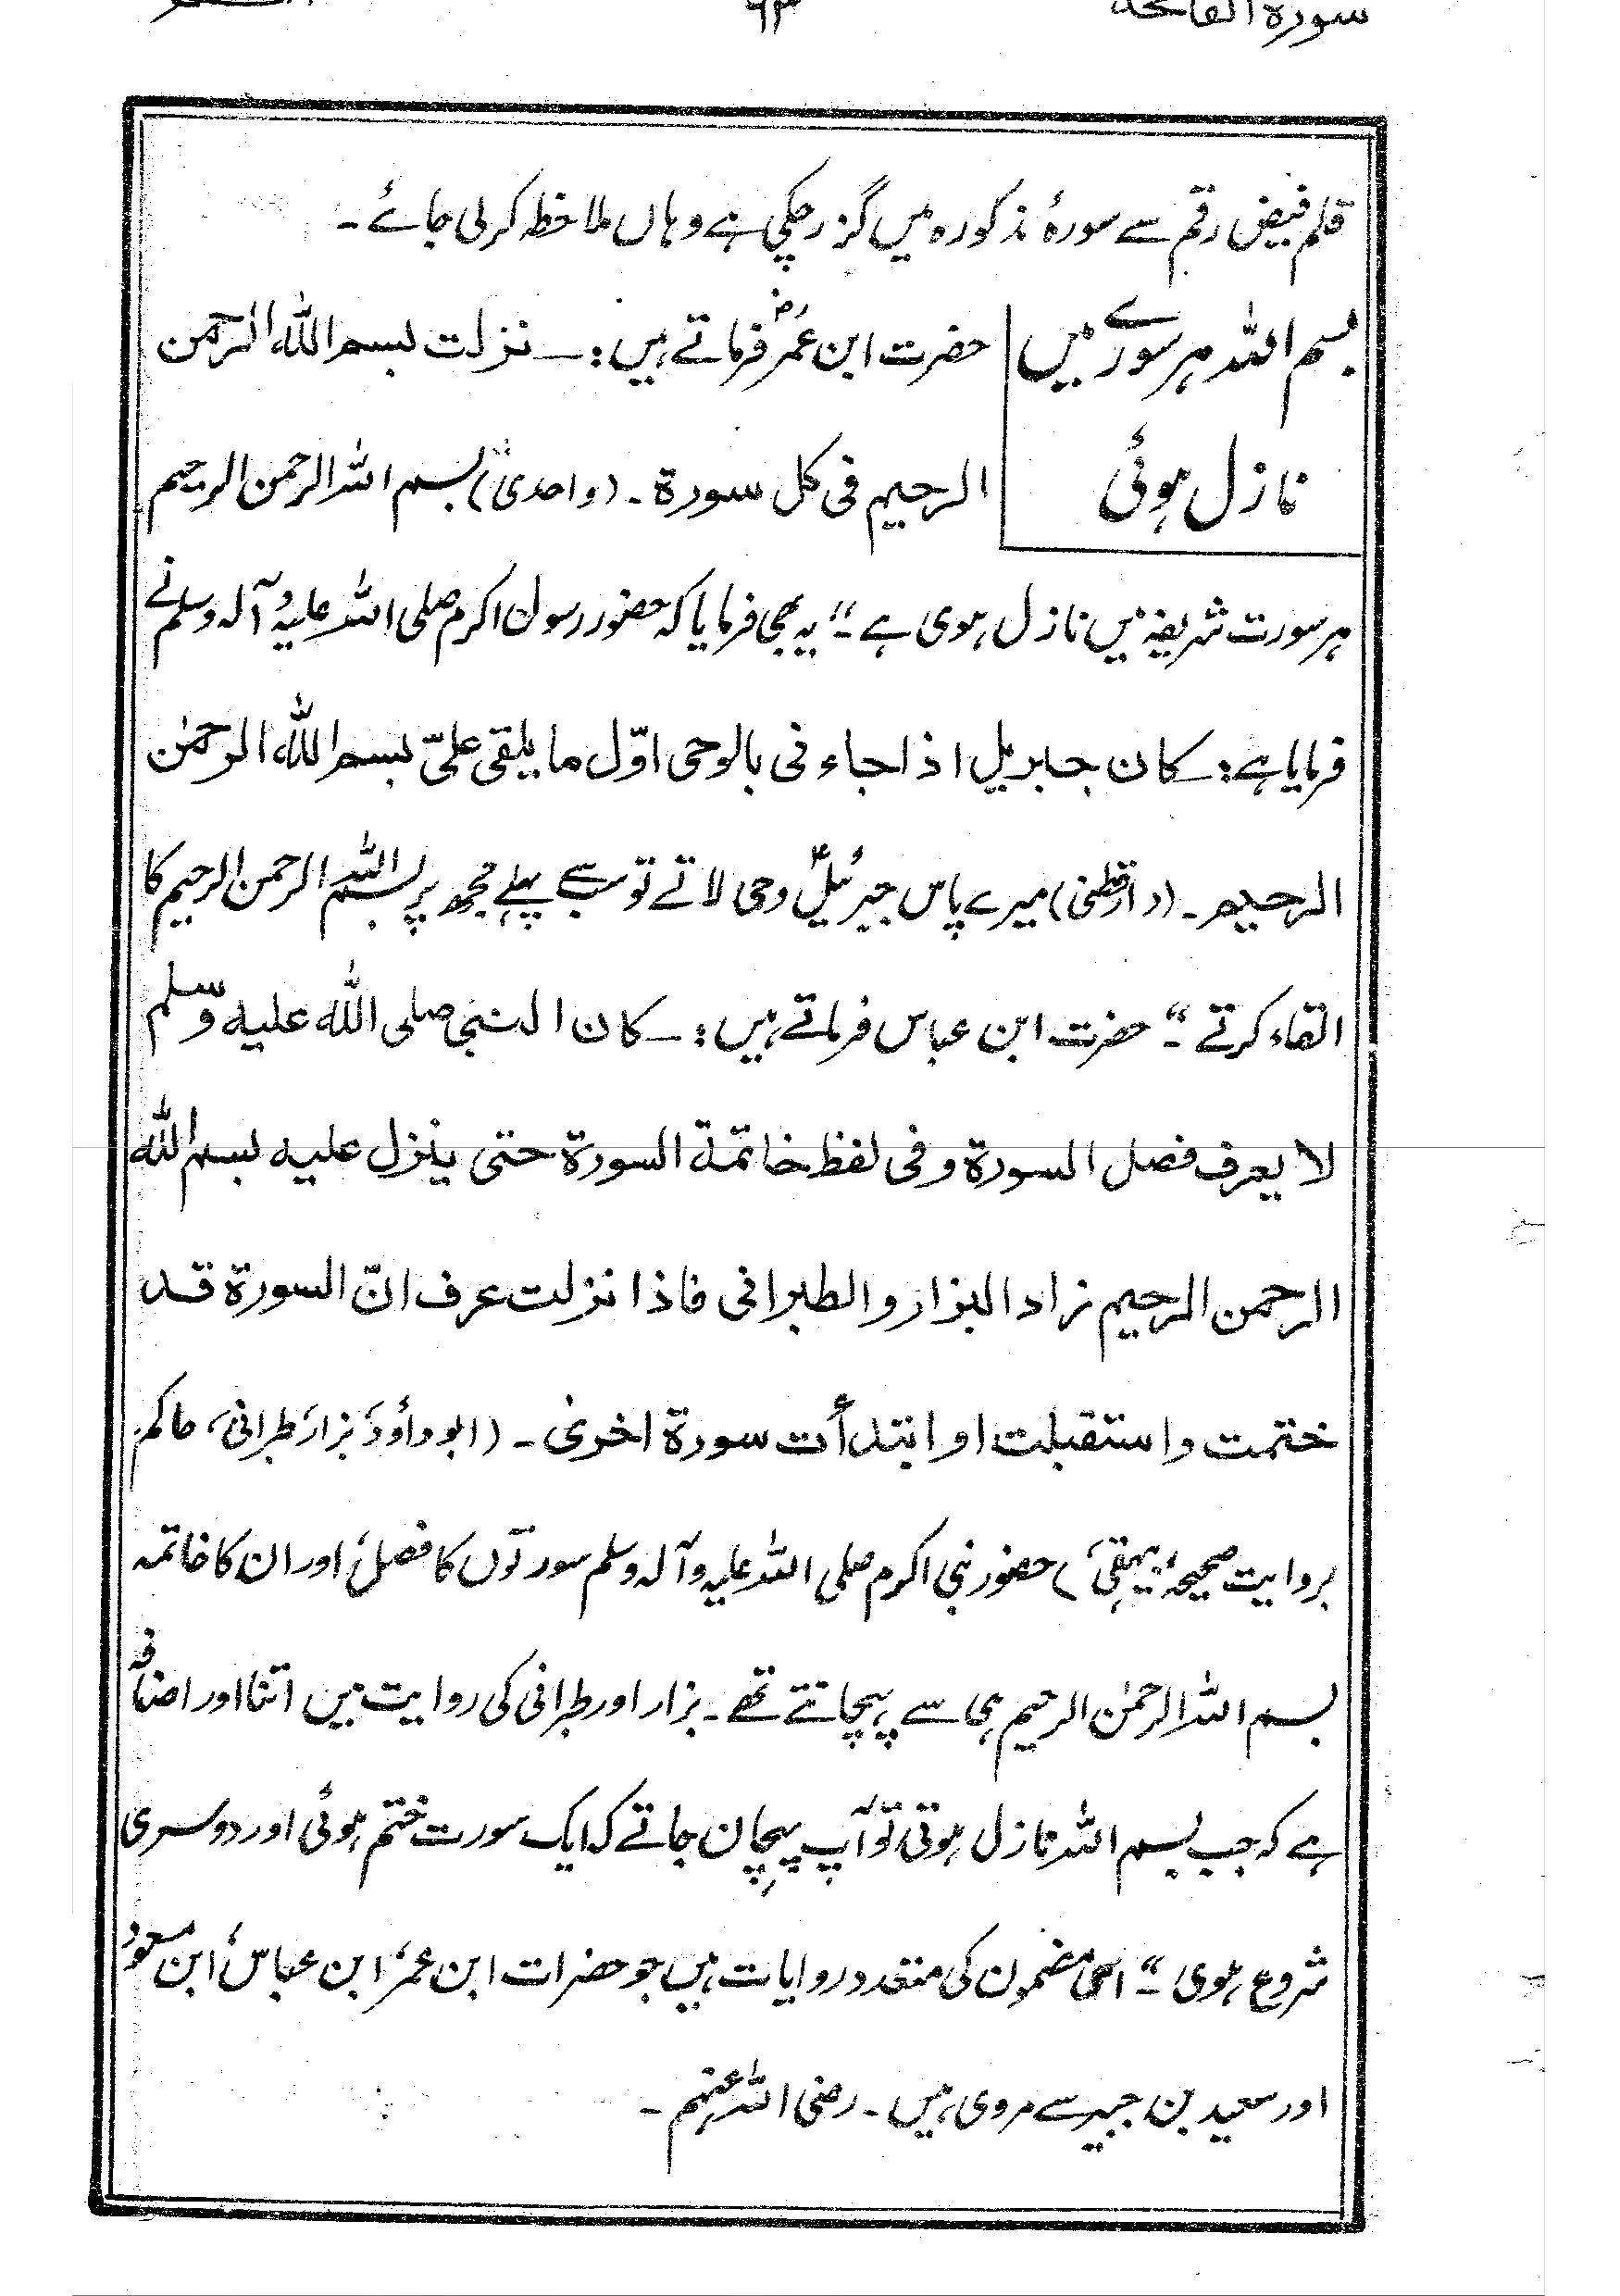 سورة الفاتحة
۶۳
قلم فیض رقم سے سورۂ مذکورہ میں گزر چکی ہے وہاں ملاحظہ کرلی جائے ۔
بسم اللہ ہر سورے میں
نازل ہوئی
حضرت ابن عمرؓ فرماتے ہیں :۔ نزلت بسم الله الرحمن
الرحیم فی کل سورة ۔ (واحدی) بسم اللہ الرحمن الرحیم
ہر سورت شریفہ میں نازل ہوی ہے ۔“ یہ بھی فرمایا کہ حضور رسول اکرم صلی اللہ علیہ و آلہ وسلم نے
فرمایا ہے : ۔ کان جبریل اذا جاء نی بالوحی اوّل ما یلقی علیّ بسم الله الرحمٰن
الرحیم ۔ (دارقطنی) میرے پاس جبرئیلؑ وحی لاتے تو سب سے پہلے مجھ پر بسم اللہ الرحمن الرحیم کا
القاء کرتے ۔“ حضرت ابن عباس فرماتے ہیں : ۔ کان النبی صلی الله علیه وسلم
لا یعرف فصل السورة وفی لفظ خاتمة السورة حتی ینزل علیه بسم الله
الرحمن الرحیم زاد البزار والطبرانی فاذا نزلت عرف انّ السورة قد
ختمت واستقبلت او ابتدأت سورة اخری ۔ (ابوداؤد، بزار، طبرانی، حاکم
بروایت صحیحہ، بیہقی) حضور نبی اکرم صلی اللہ علیہ و آلہ وسلم سورتوں کا فصل، اور ان کا خاتمہ
بسم اللہ الرحمٰن الرحیم ہی سے پہچانتے تھے ۔ بزار اور طبرانی کی روایت میں اتنا اور اضافہ
ہے کہ جب بسم اللہ نازل ہوتی تو آپ پہچان جاتے کہ ایک سورت ختم ہوئی اور دوسری
شروع ہوی ۔“ اسی مضمون کی متعدد روایات ہیں جو حضرات ابن عمر، ابن عباس، ابن مسعود
اور سعید بن جبیر سے مروی ہیں ۔ رضی اللہ عنہم ۔